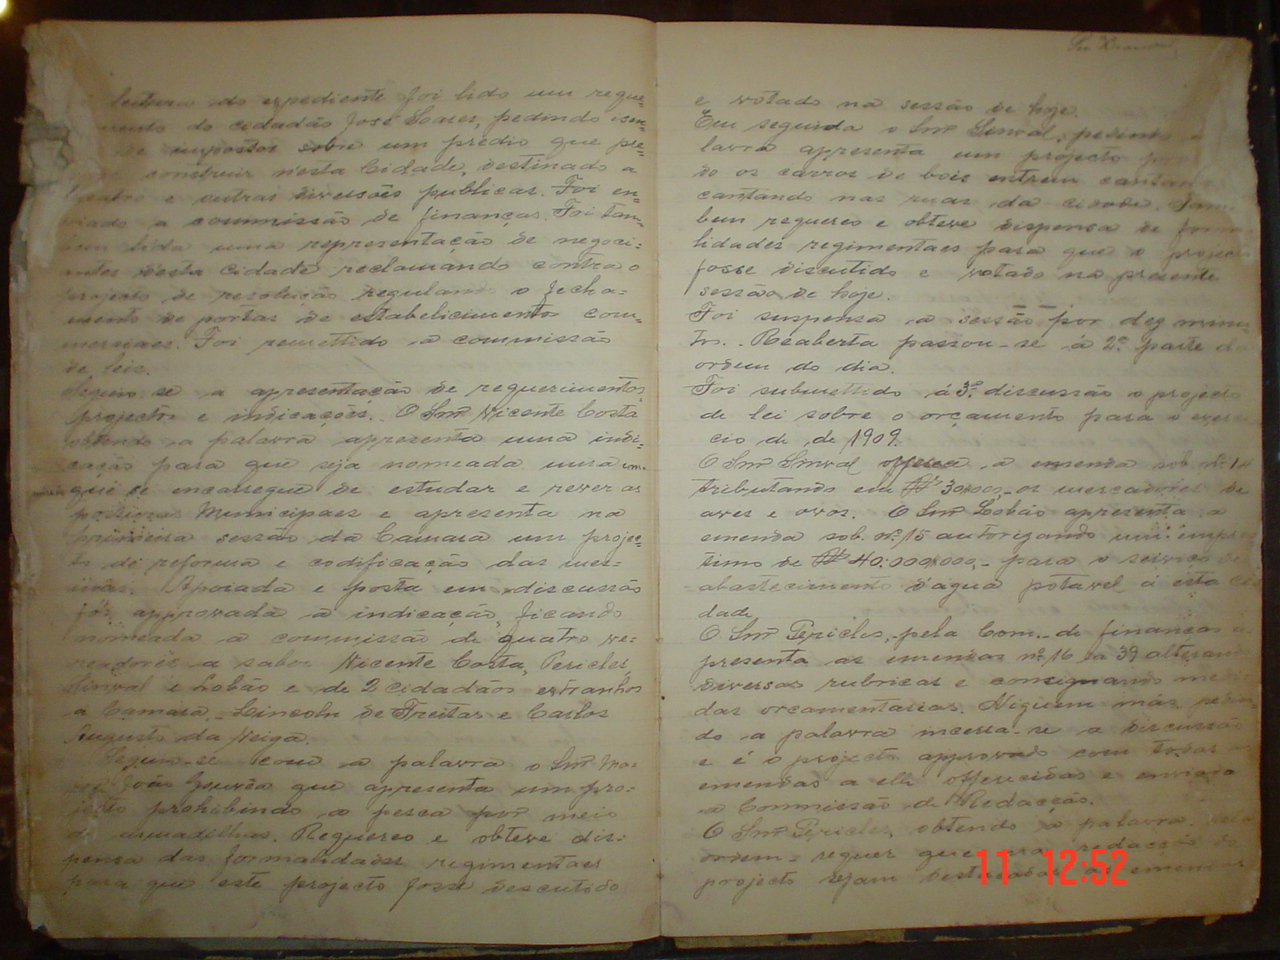 leitura do expediente foi lido um reque=
mento do cidadão José Soares, pedindo isen=
de impostos sobre um predio que pre=
construir nesta Cidade, destinado a
theatro e outras diversões publicas. Foi en=
viado a commissão de finanças. Foi tam=
bem lida uma representação de negoci=
antes desta Cidade reclamando contra o
projecto de resolução regulando o fecha=
mento de portas de estabelicimento com=
merciaes. Foi remettido a commissão
de leis.
Seguiu se a apresentação de requerimentos,
projectos e indicações. O Snr Vicente Costa
obtendo a palavra apresenta uma indi=
cação para que seja nomeada uma
que se encarregue de estudar e rever as
posturas Municipaes e apresenta na
primeira sessão da Camara um projec=
to de reforma e codificação das mes=
mas. Apoiada e posta em discussão
foi approvada a indicação, ficando
nomeada a commissão de quatro ve=
readores a saber Vicente Costa, Pericles,
Sinval e Lobão e de 2 cidadãos extranhos
a Camara - Lincoln de Freitas e Carlos
Augusto da Veiga.
Seguiu-se com a palavra o Snr
João que apresenta um pro=
jecto prohibindo a pesca por meio
de armadilhas. Requereo e obteve dis=
pensa das formalidades regimentaes
para que este projecto fosse descutido
e votado na sessão de hoje.
Em seguida o Snr Sinval,
lavra apresenta um projecto
do os carros de bois entrem
cantando nas ruas da cidade. Tam
bem requereo e obteve dispensa de
lidades regimentaes para que o projecto
fosse discutido e votado na presente
sessão de hoje.
Foi suspensa a sessão por dez minu
tos. Reaberta passou-se á 2ª parte da
ordem do dia.
Foi submettido á 3ª discussão o projecto
de lei sobre o orçamento para o exer
cio de de 1909.
O Snr Sinval offerece a emenda sob nº 14
tributando em 30$000 os mercadores de
aves e ovos. O Snr Lobão apresenta a
emenda sob nº 15 autorizando um empres
timo de 40.000$000 - para o serviço de
abastecimento d'agua potavel á esta ci
dade.
O Snr Pericles, pela Com. de finanças a
presenta as emendas nº 16 a 39 alterando
diversas rubricas e consignando medi
das orçamentarias. Niguem mais pedin
do a palavra incessa-se a discussão
e é o projecto approvado com todas as
emendas a elle offerecidas e enviado
a Commissão de Redacção.
O Snr Pericles, obtendo a palavra pela
ordem = requer que na redacção do
projecto sejam destacadas
11 12:52